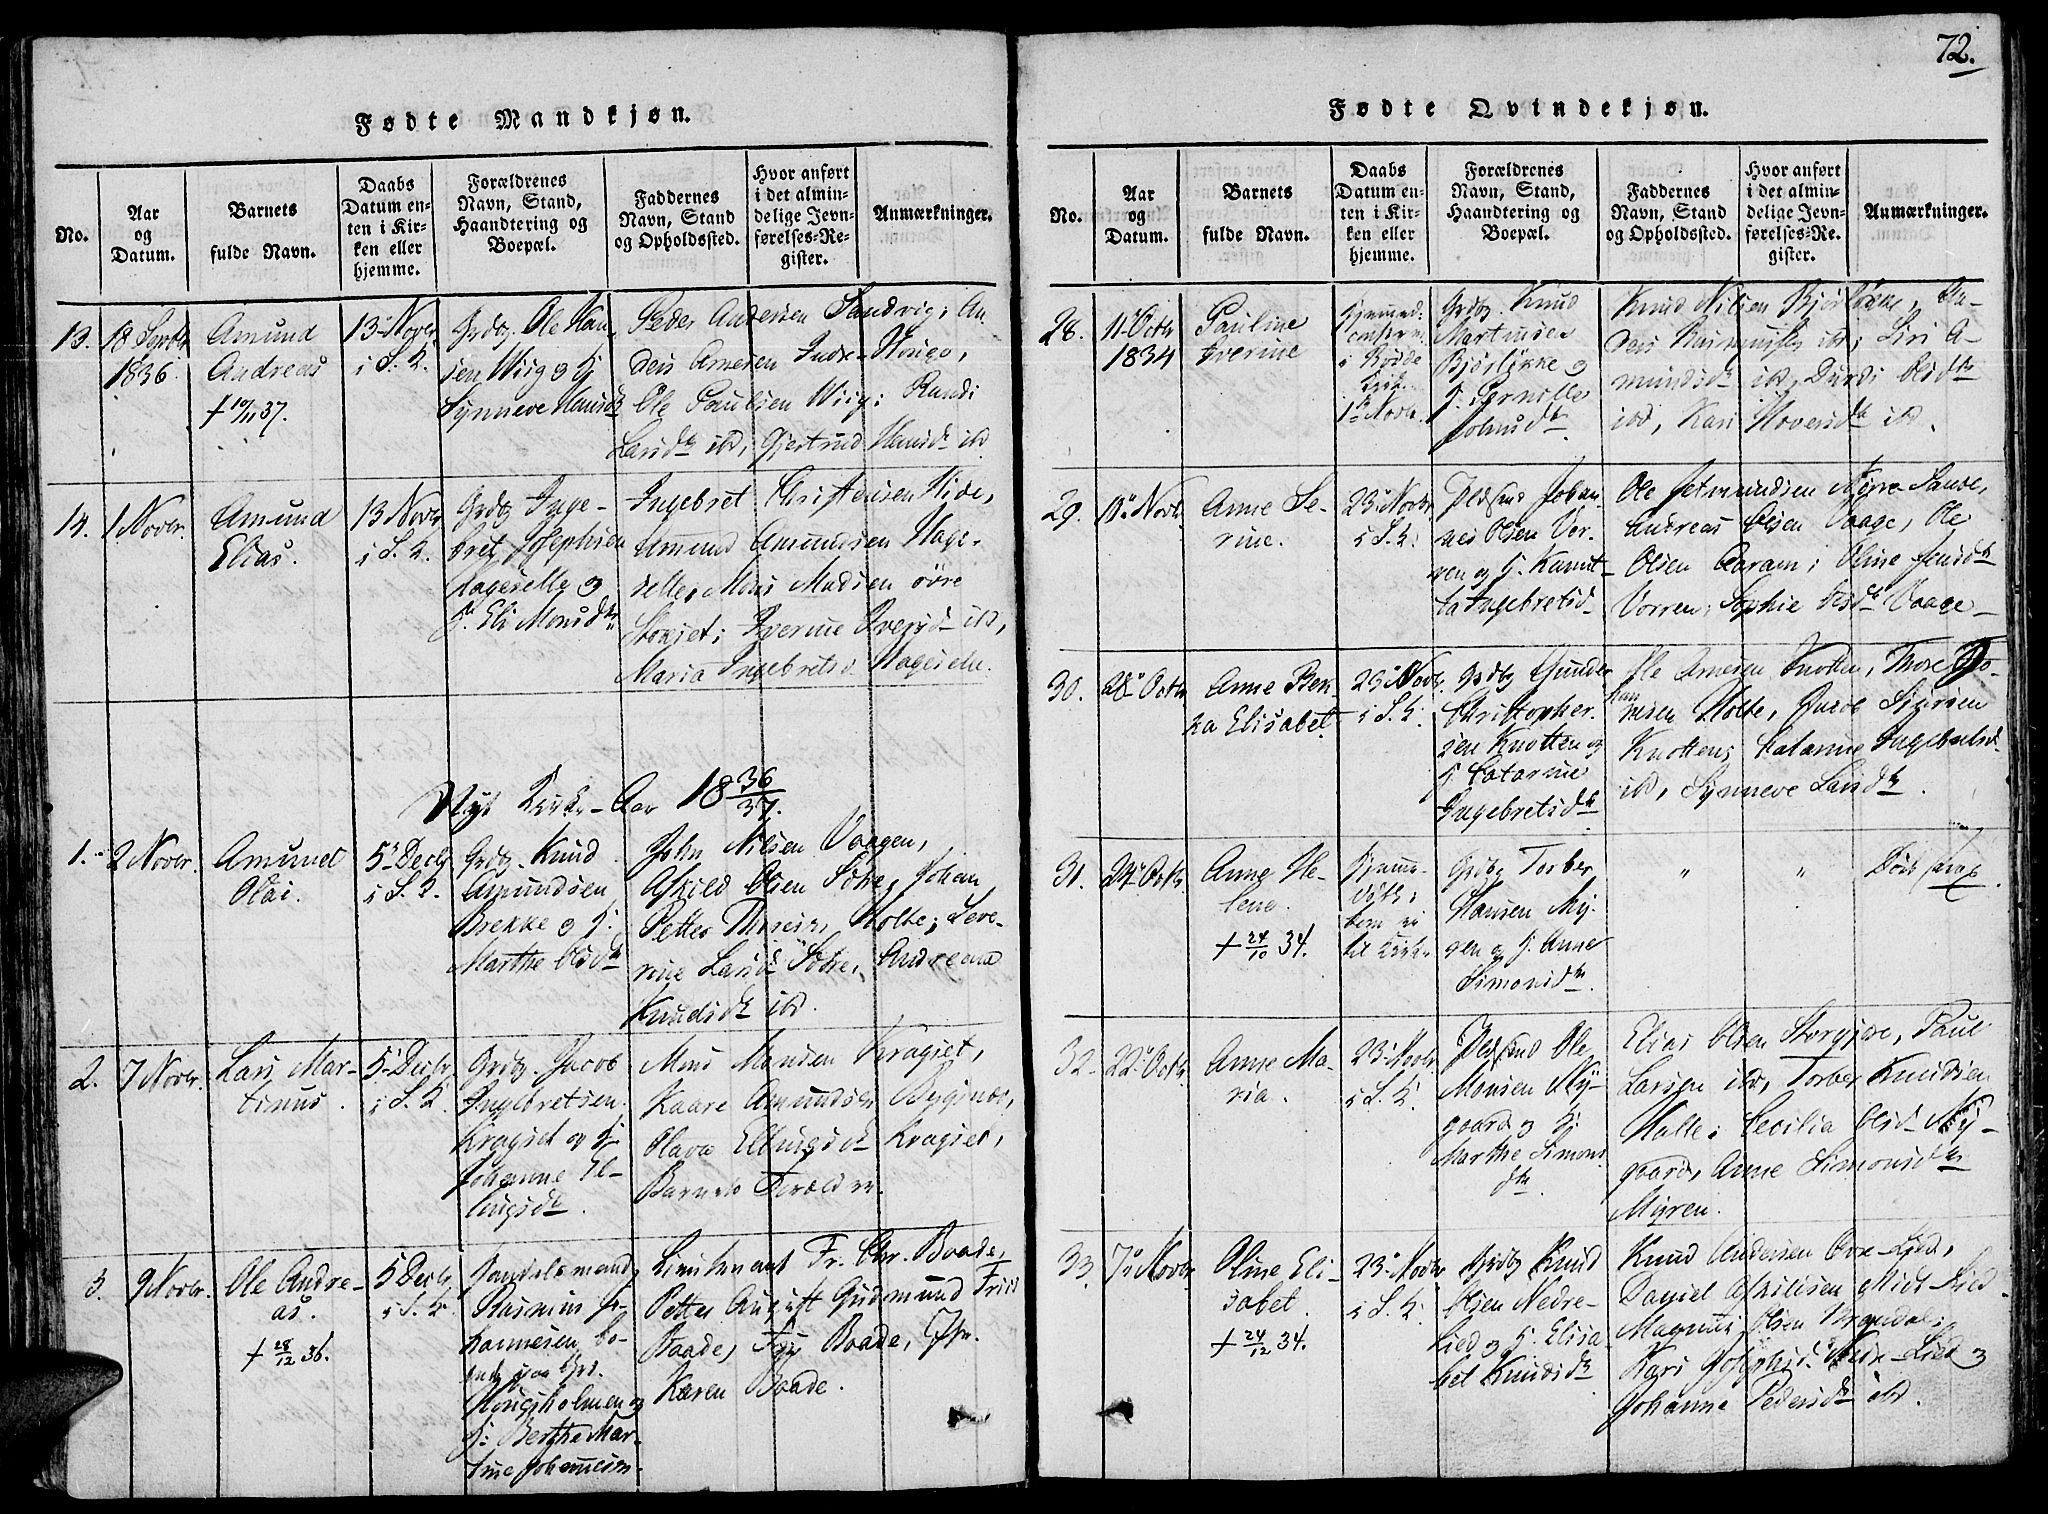 72.
Fødte Mandkjøn.
No.
Aar
og
Datum.
Barnets
fulde Navn.
Daabs
Datum en-
ten i Kir-
ken eller
hjemme.
Forældrenes
Navn, Stand,
Haandtering og
Boepæl.
Faddernes
Navn, Stand
og Opholdssted.
Hvor anført
i det almin-
delige Jevn-
førelses-Re-
gister.
Anmærkninger.
13.
18 Septbr
1836.
Amund
Andreas
† 10/11 37.
13 Novbr
i S. K.
Grdbr. Ole Han-
sen Wiig og H.
Synneve Hansdtr
Peder Andersen Sandvig; An-
ders Amesen Indre-
Ole Paulsen Wiig; Randi
Larsdtr ibd, Gjertrud Hansdtr ibd
14.
1 Novbr.
Amund
Elias.
13 Novbr
i S. K.
Grdbr Inge-
bret Josephsen
Hageselle og
H. Eli Monsdtr
Ingebret Christensen Hide,
Amund Amundsen Hage-
selle, Mons Madsen øvre
Iverine Iversdtr ibd,
Maria Ingebretsd
Nyt Kirke-Aar 1836/37.
1.
2 Novbr.
Amund
Olai.
5 Decbr
i S. K.
Grdbr. Knud
Amundsen
Brekke og H.
Marthe Olsdtr
John Nilsen Vaagen,
Askild Olsen Johan
Petter Holte; Seve-
rine Larsd Andreana
Knudsdtr ibd.
2.
7 Novbr.
Lars Mar-
tinus.
5 Decbr
i S. K.
Grdbr. Jacob
Ingebretsen
Kragset og H.
Johanne El-
lingsdtr.
Mons Monsen Kragset,
Kaare Amundsen
Olava Ellingsdtr Kragset,
Barnets Forældre.
3.
9 Novbr.
Ole Andre-
as.
† 28/12 36.
5 Decbr
i S. K.
Handelsmand
Rasmus Jo-
hannesen bo-
ende paa
Kongsholmen og
H: Berthe Mar-
tine Johannesen.
Lieutenant Fr. Chr. Baade,
Petter August Gudmund Friis
Baade, Baade, Jfr.
Karen Baade.
Fødte Qvindekjøn.
No.
Aar
og
Datum.
Barnets
fulde Navn.
Daabs
Datum en-
ten i Kir-
ken eller
hjemme.
Forældrenes
Navn, Stand,
Haandtering og
Boepæl.
Faddernes
Navn, Stand
og Opholdssted.
Hvor anført
i det almin-
delige Jevn-
førelses-Re-
gister.
Anmærkninger.
28.
11 Octbr
1834
Pauline
Iverine
i
1 Novbr.
Grdbr. Knud
Martinsen
Bjørløkke og
H. Pernille
Johnsdtr.
Knud Nilsen Bjørløkke, An-
ders ibd; Siri A-
mundsdtr ibd, Durdi Olsdtr
ibd, Kari ibd.
29.
Novbr.
Anne Se-
rine.
23 Novbr
i S. K.
Johan-
nes Olsen Vor-
ren og H.
Ingebretsd.
Ole
Andreas Olsen Vaage, Ole
Olsen Aaram; Oline Jensdtr
Vorren; Sophie Olsdtr Vaage
30.
28 Octbr
Anne Ber-
ta Elisabet.
23 Novbr.
i S. K.
Grdbr Gunder
Christopher-
sen Knotten og
H. Catarine
Ingebretsdtr
Ole Amesen Knotten, Thore Jo-
hannesen Holte, Jacob Sjursen
Knotten; Catarine Ingebretsd
ibd, Synneve Larsdtr.
31.
24 Octbr
Anne He-
lene.
† 24/10 34.
Hjemme-
døbt;
kom ei
til Kirke
Grdbr Torber
Hansen My-
ren og H. Anne
Simonsdtr.
"
"
Død strax.
32.
22 Octbr
Anne Ma-
ria.
23 Novbr
i S. K.
Ole
Monsen Ny-
gaard og H:
Marthe Simons-
dtr.
Elias Olsen Paul
Larsen ibd, Torber Knudsen
Halle; Cecilia Olsd Ny-
gaard, Anne Simonsdtr
Myren.
33.
7 Novbr
Oline Eli-
sabet.
† 24/12 34.
23 Novbr
i S. K.
Grdbr Knud
Olsen Nedre-
Lied og H. Elisa-
bet Knudsdtr
Knud Andersen Øvre-Lied,
Daniel Askildsen Midt-Lied
Magnus Olsen
Kari Josephsd. Nedre-Lied og
Johanne Pedersdtr ibd.